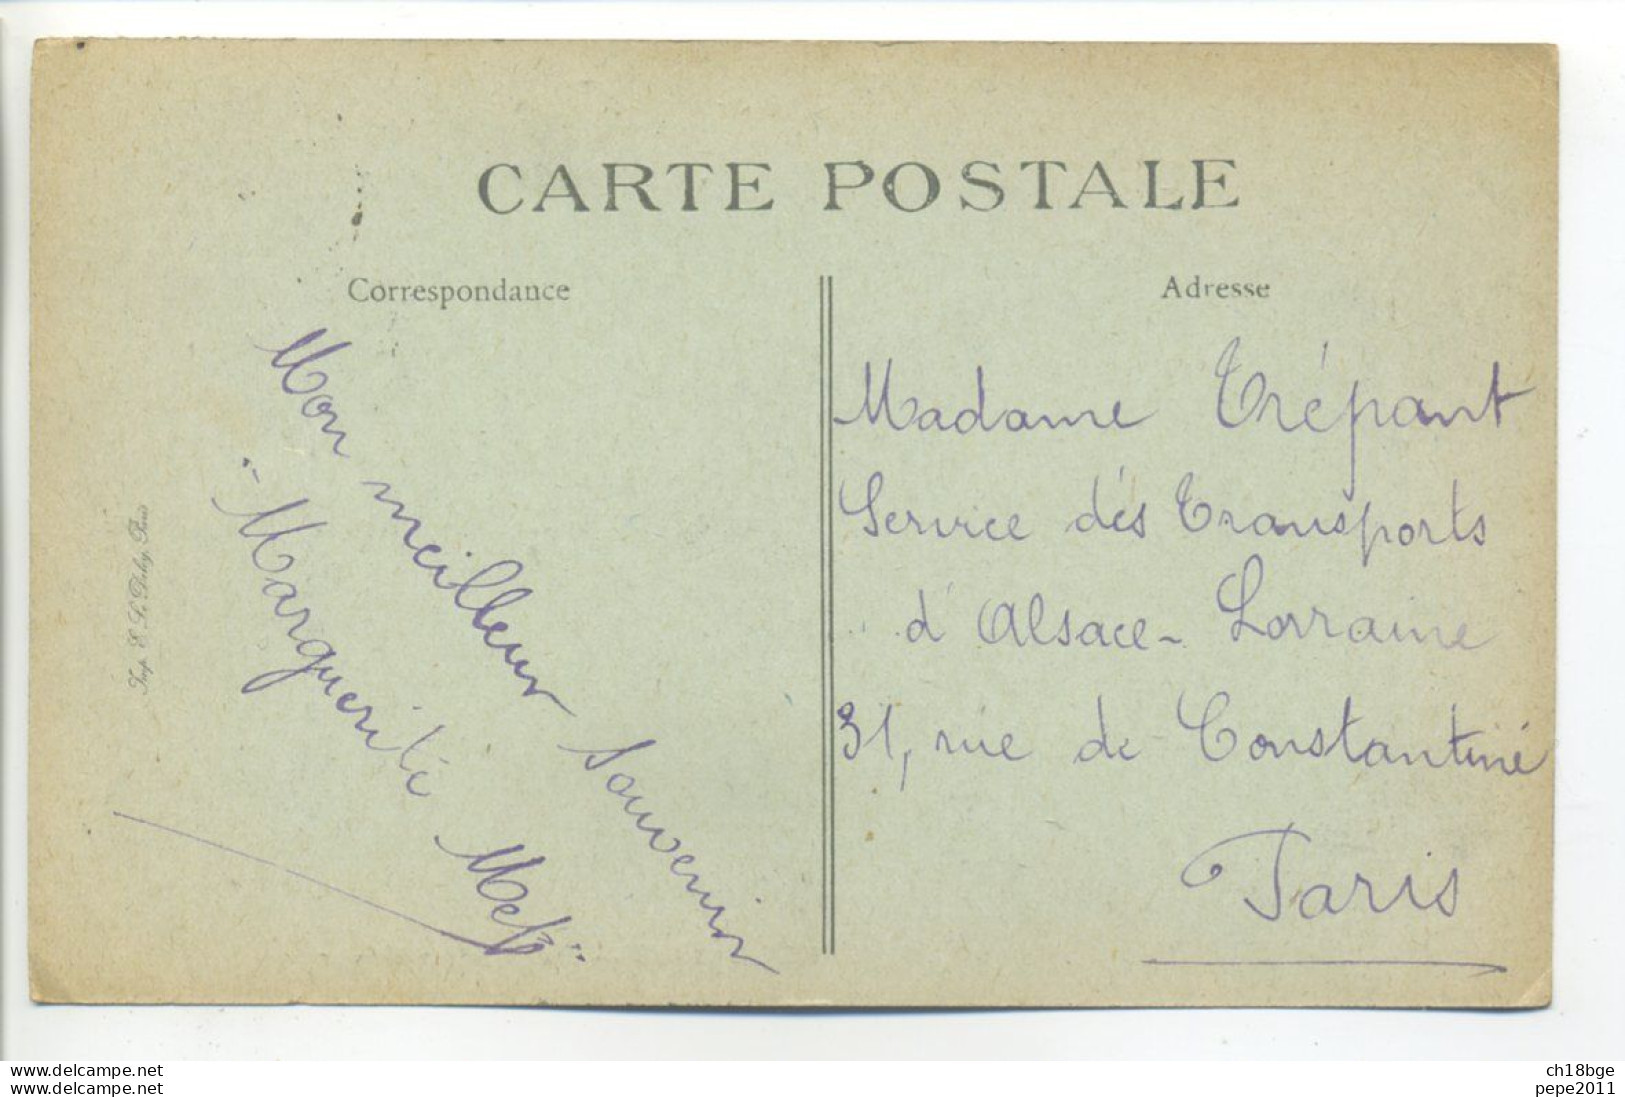 CARTE POSTALE
Correspondance
Adresse
Mon meilleur souvenir
"Marguerite
Madame Trépant
Service des Transports
d'Alsace-Lorraine
31, rue de Constantine
Paris
Imp. E. Le Deley, Paris
www.delcampe.net
www.delcampe.net
ch18bge
pepe2011